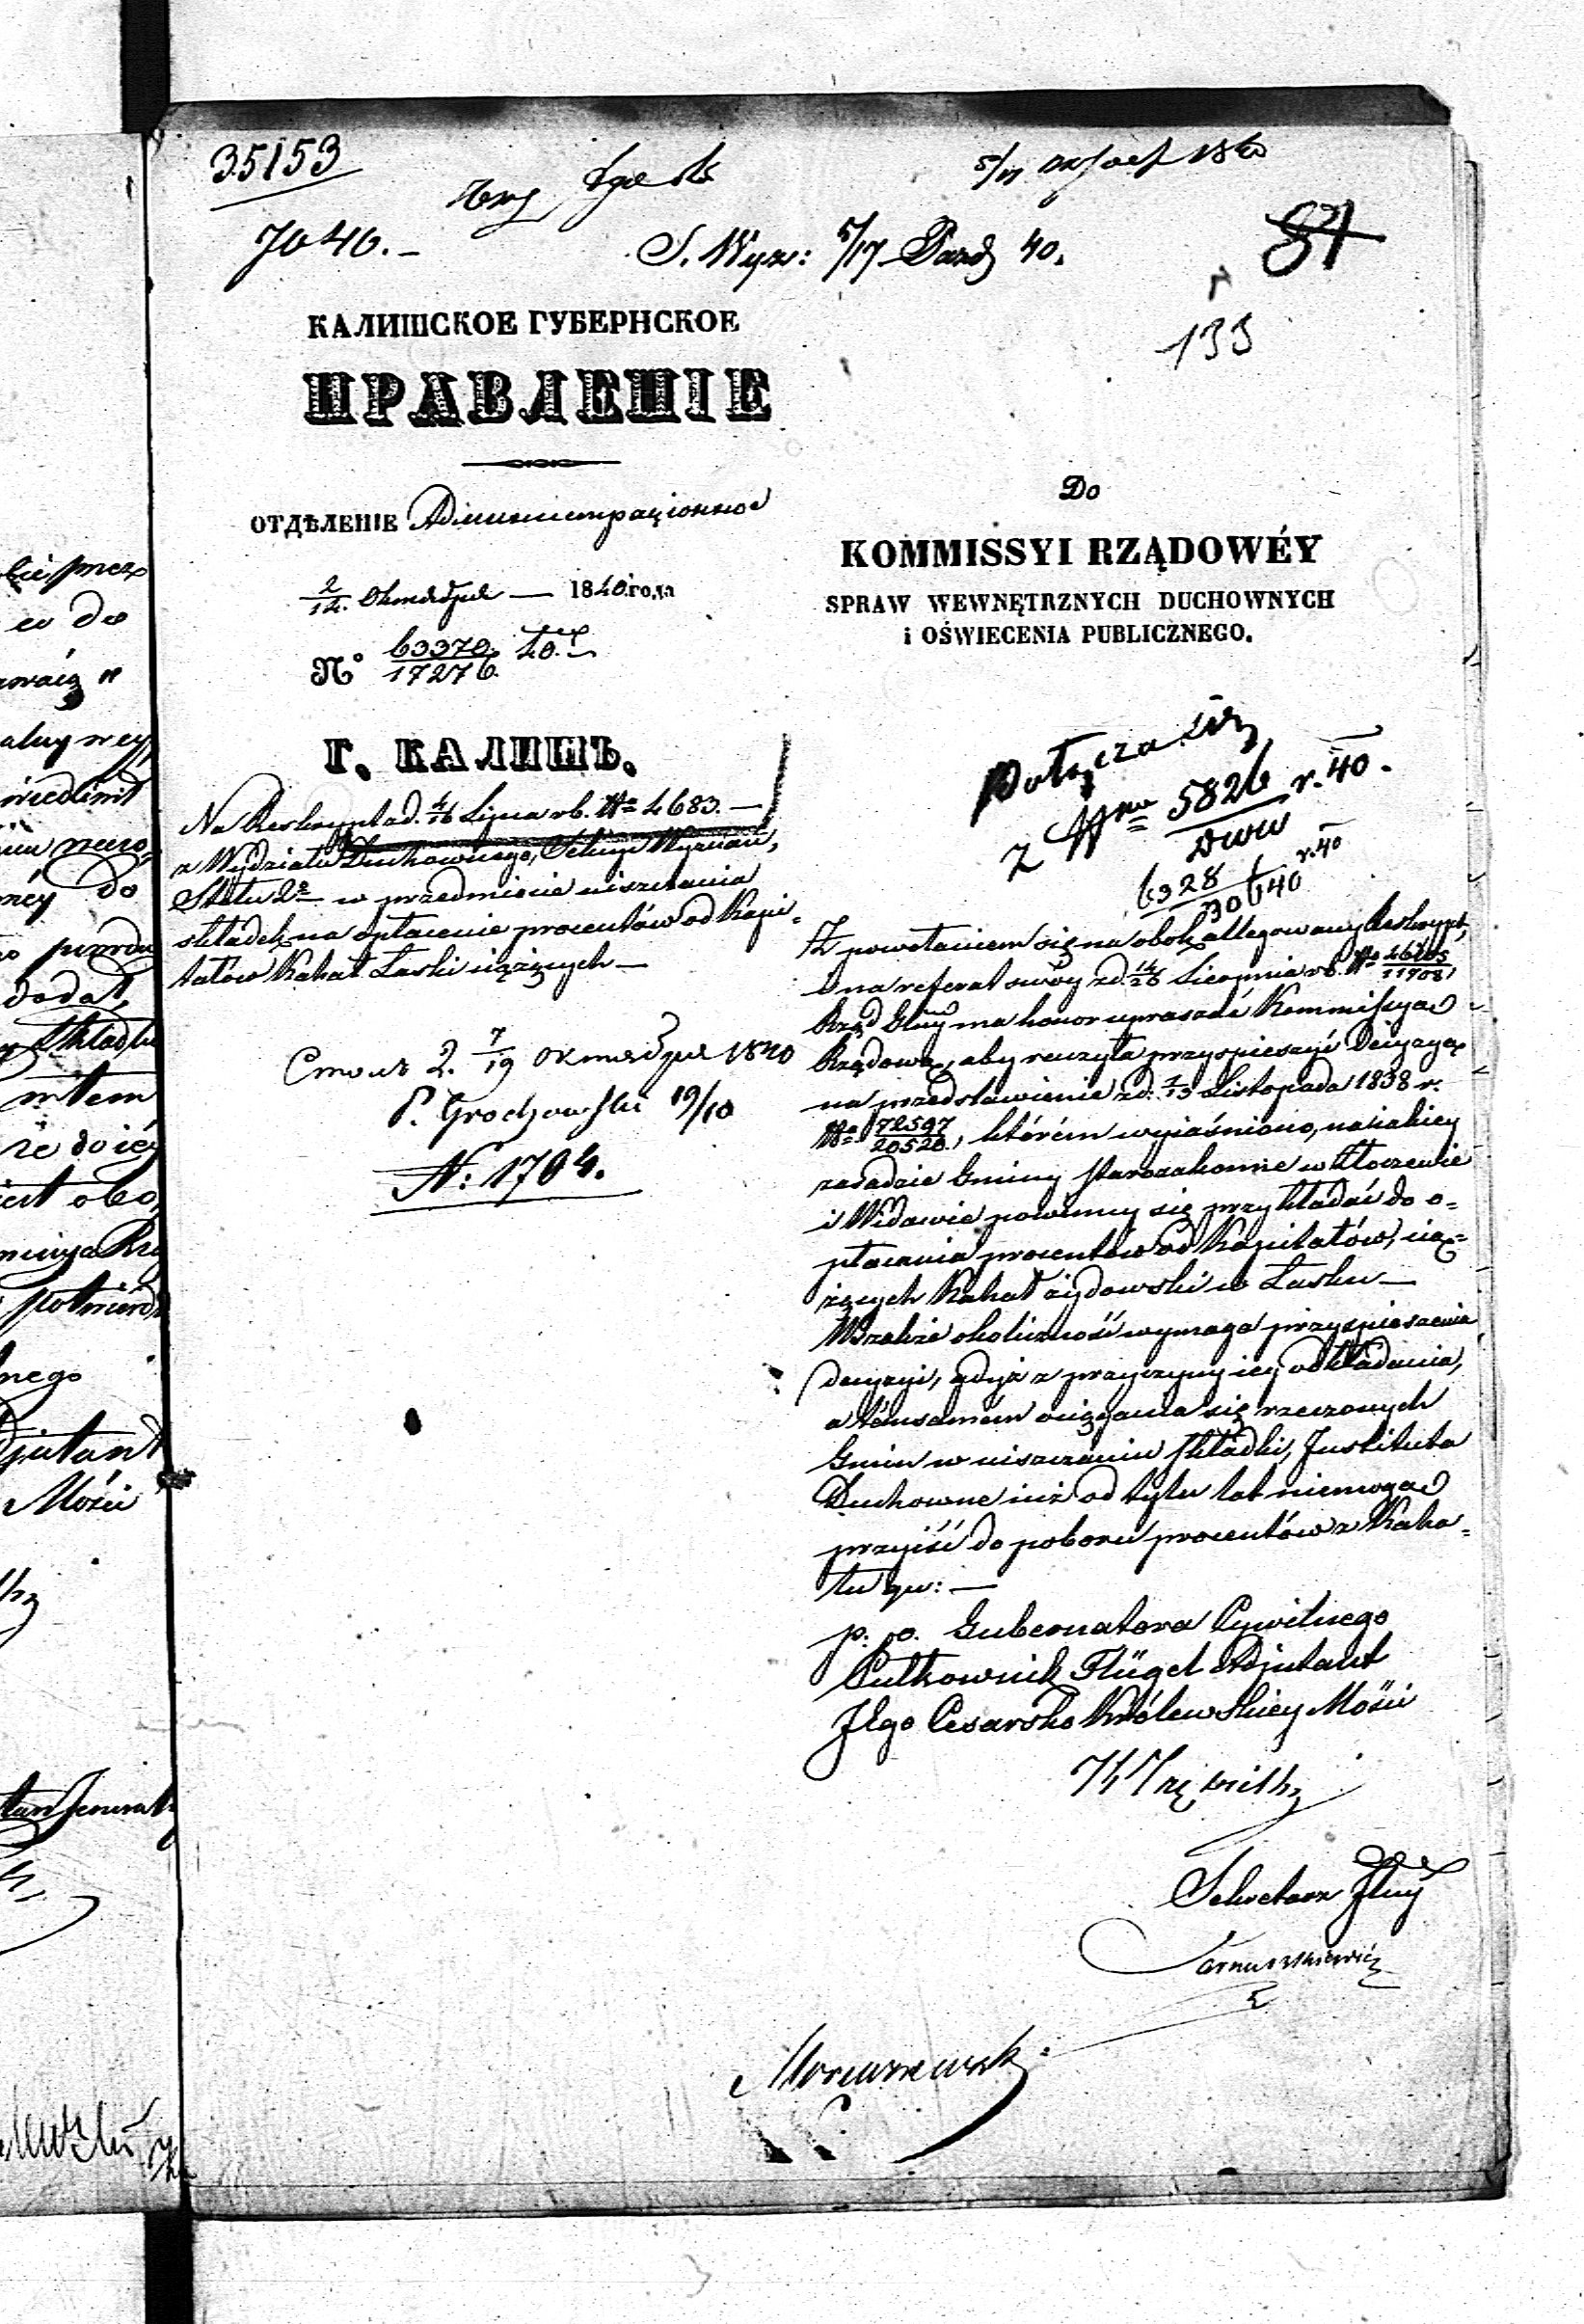 35153
7040.
S. Wyzn: 5/17 Paźd 40.
81
133
КАЛИШСКОЕ ГУБЕРНСКОЕ
ПРАВЛЕНІЕ
ОТДѢЛЕНІЕ Администраціонное
2/14. Октября — 1840 года
№ 63370/17276.
Г. КАЛИШЪ.
Na Reskrypt z d. 4/16 Lipca rb. No 4683. —
z Wydziału Duchownego, Sekcyi Wyznań,
Stołu 2o w przedmiocie uiszczania
składek na opłacenie procentów od Kapi-
tałów Kahał Łaski ciążących —
Столъ 2. 7/19 Октября 1840
P. Grochowski 19/10
N: 1704.
Do
KOMMISSYI RZĄDOWÉY
SPRAW WEWNĘTRZNYCH DUCHOWNYCH
i OŚWIECENIA PUBLICZNEGO.
Połącza się
z Nrm 5826 r. 40.
DWW
6328/30640 r. 40
Z powołaniem się na obok allegowany Reskrypt,
i na referat swóy z d. 14/26 Sierpnia rb. No
Rząd Glny ma honor upraszać Kommissyą
Rządową, aby raczyła przyspieszyć Decyzyą
na przedstawienie z d. 1/13 Listopada 1838 r.
No 72597/20520., którém wyjaśniono, na jakiey
zasadzie Gminy starozakonne w Złoczewie
i Widawie powinny się przykładać do o-
płacania procentów od Kapitałów, cią-
żących Kahał żydowski w Łasku —
Wszakże okoliczność wymaga przyspieszenia
decyzyi, gdyż z przyczyny iey odkładania,
a témsamém ociągania się rzeczonych
Gmin w uiszczaniu składki, Instituta
Duchowne iuż od tylu lat niemogą
przyiść do poboru procentów z Kaha-
łu qu: —
p. o. Gubernatora Cywilnego
Pułkownik Flügel Adjutant
Jego Cesarsko Królewskiey Mości
Sekretarz Jlny